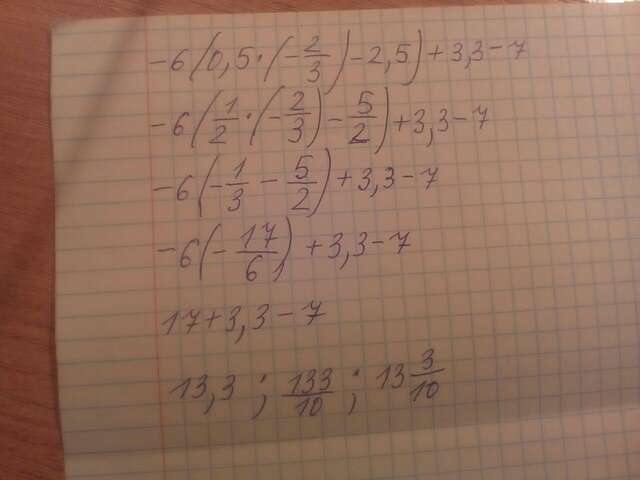 -6(0,5·(-2/3)-2,5)+3,3-7
-6(1/2·(-2/3)-5/2)+3,3-7
-6(-1/3-5/2)+3,3-7
-6(-17/6)+3,3-7
17+3,3-7
13,3 ; 133/10 ; 13 3/10